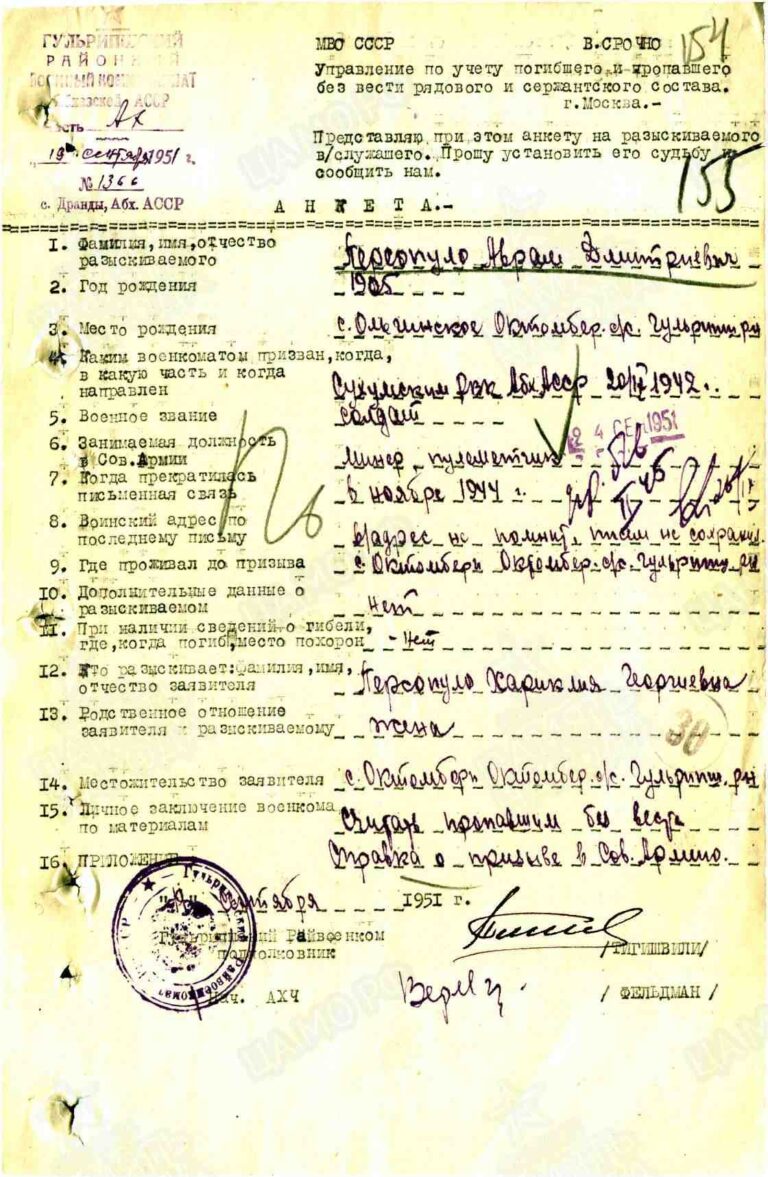 ГУЛЬРИПШСКИЙ
РАЙОННЫЙ
ВОЕННЫЙ КОМИССАРИАТ
Абхазской АССР
Часть АХ
"19" сентября 1951 г.
№ 1366
с. Дранды, Абх. АССР
МВО СССР В.СРОЧНО
154
Управление по учету погибшего и пропавшего
без вести рядового и сержантского состава.
г.Москва.-
Представляю при этом анкету на разыскиваемого
в/служащего. Прошу установить его судьбу и
сообщить нам.
155
АНКЕТА.-
1. Фамилия,имя,отчество
разыскиваемого Персопуло Аврам Дмитриевич
2. Год рождения 1905
3. Место рождения с. Ольгинское Октомбер. с/с. Гульрипш. р-н
4. Каким военкоматом призван,когда,
в какую часть и когда
направлен Сухумским РВК Абх.АССР 20/IV 1942 г.
5. Военное звание солдат
24 СЕН 1951
6. Занимаемая должность
в Сов.Армии минер, пулеметчик
7. Когда прекратилась
письменная связь в ноябре 1944 г.
8. Воинский адрес по
последнему письму в/адрес не помнит, писем не сохранил.
9. Где проживал до призыва с. Октомбери Октомбер. с/с. Гульрипш. р-н
10. Дополнительные данные о
разыскиваемом нет
11. При наличии сведений о гибели,
где,когда погиб,место похорон - нет
12. Кто разыскивает:фамилия,имя,
отчество заявителя Персопуло Хариклия Георгиевна
13. Родственное отношение
заявителя к разыскиваемому жена
30
14. Местожительство заявителя с. Октомбери Октомбер. с/с. Гульрипш. р-н
15. Личное заключение военкома
по материалам Считать пропавшим без вести
16. ПРИЛОЖЕНИЕ Справка о призыве в Сов.Армию.
сентября 1951 г.
Гульрипшский Райвоенком
подполковник /ТИГИШВИЛИ/
Нач. АХЧ / ФЕЛЬДМАН /
ЦАМО РФ